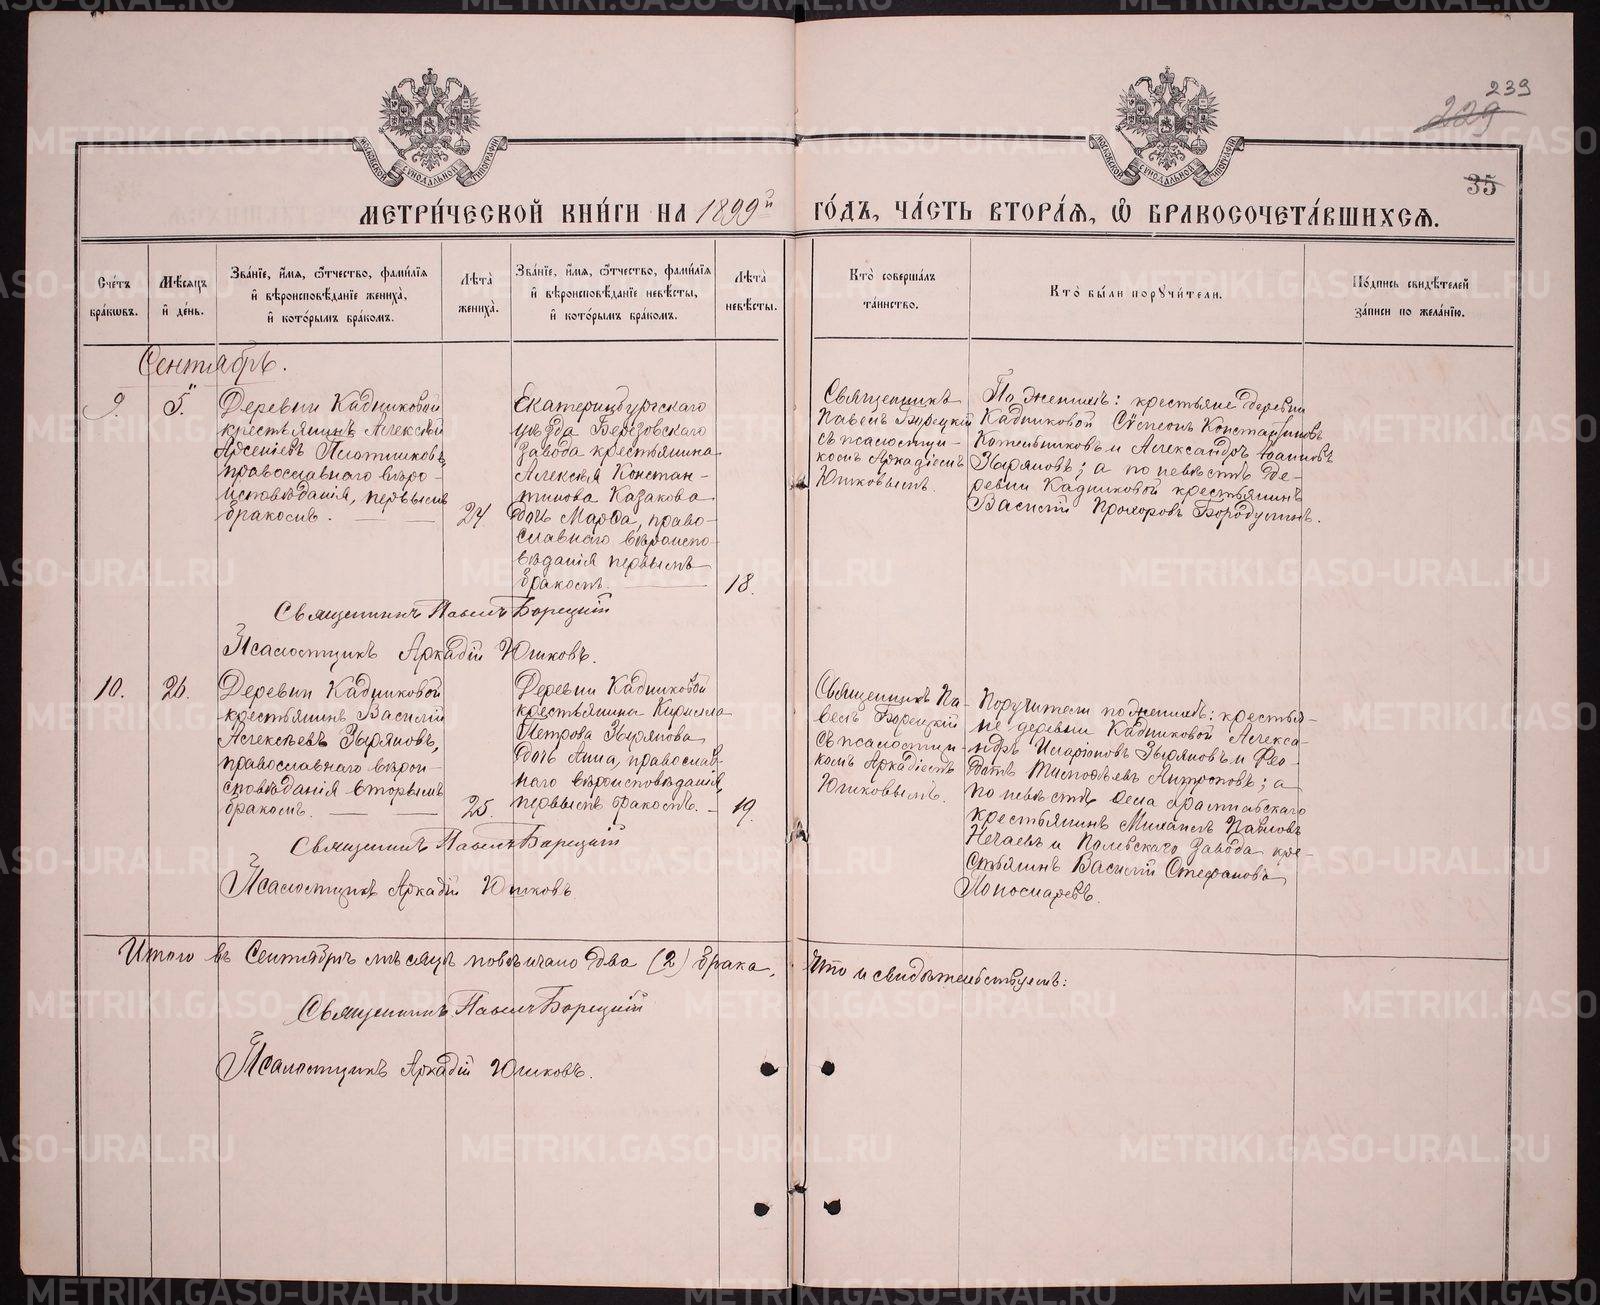 239
229
35
МОСКОВСКОЙ СѴНОДАЛЬНОЙ ТИПОГРАФІИ
МОСКОВСКОЙ СѴНОДАЛЬНОЙ ТИПОГРАФІИ
МЕТРИ́ЧЕСКОЙ КНИ́ГИ НА 1899й ГО́ДЪ, ЧА́СТЬ ВТОРА́Ѧ, Ѽ БРАКОСОЧЕТА́ВШИХСѦ.
Сче́тъ
бра́кѡвъ.
Мѣ́сѧцъ
и҆ де́нь.
Зва́нїе, и҆́мѧ, ѻ҆́тчество, фами́лїѧ
и҆ вѣроисповѣ́данїе жениха̀,
и҆ кото́рымъ бра́комъ.
Лѣ́та
жениха̀.
Зва́нїе, и҆́мѧ, ѻ҆́тчество, фами́лїѧ
и҆ вѣроисповѣ́данїе невѣ́сты,
и҆ кото́рымъ бра́комъ.
Лѣ́та
невѣ́сты.
Кто̀ соверша́лъ
та́инство.
Кто̀ бы́ли порꙋчи́тели.
По́дпись свидѣ́телей
за́писи по жела́нїю.
Сентябрь.
9.
5.
Деревни Кадниковой
крестьянинъ Алексѣй
Арсеніевъ Плотниковъ,
православнаго вѣро-
исповѣданія, первымъ
бракомъ.
24
Екатеринбургскаго
уѣзда Березовскаго
завода крестьянина
Алексѣя Констан-
тинова Казакова
дочь Марѳа, право-
славнаго вѣроиспо-
вѣданія первымъ
бракомъ.
18.
Священникъ
Павелъ Борецкій
съ псаломщи-
комъ Аркадіемъ
Юшковымъ.
По женихѣ: крестьяне деревни
Кадниковой Стѣпанъ Константиновъ
Котельниковъ и Александръ Іоанновъ
Зыряновъ; а по невѣстѣ де-
ревни Кадниковой крестьянинъ
Василій Прохоровъ Бородулинъ.
Священникъ Павелъ Борецкій
Псаломщикъ Аркадій Юшковъ.
10.
26.
Деревни Кадниковой
крестьянинъ Василій
Алексѣевъ Зыряновъ,
православнаго вѣрои-
сповѣданія вторымъ
бракомъ.
25.
Деревни Кадниковой
крестьянина Кирилла
Петрова Зырянова
дочь Анна, православ-
наго вѣроисповѣданія,
первымъ бракомъ.
19.
Священникъ Па-
велъ Борецкій
съ псаломщи-
комъ Аркадіемъ
Юшковымъ.
Поручители по женихѣ: крестья-
не деревни Кадниковой Алекса-
ндръ Иларіоновъ Зыряновъ и Ѳео-
дотъ Тимоѳеевъ Антроповъ; а
по невѣстѣ села
крестьянинъ Михаилъ Павловъ
Нечаевъ и Полевскаго завода кре-
стьянинъ Василій Стефановъ
Пономаревъ.
Священникъ Павелъ Борецкій
Псаломщикъ Аркадій Юшковъ.
Итого въ Сентябрѣ мѣсяцѣ повѣнчано два (2) брака. Что и свидѣтельствуемъ:
Священникъ Павелъ Борецкій
Псаломщикъ Аркадій Юшковъ.
METRIKI.GASO-URAL.RU